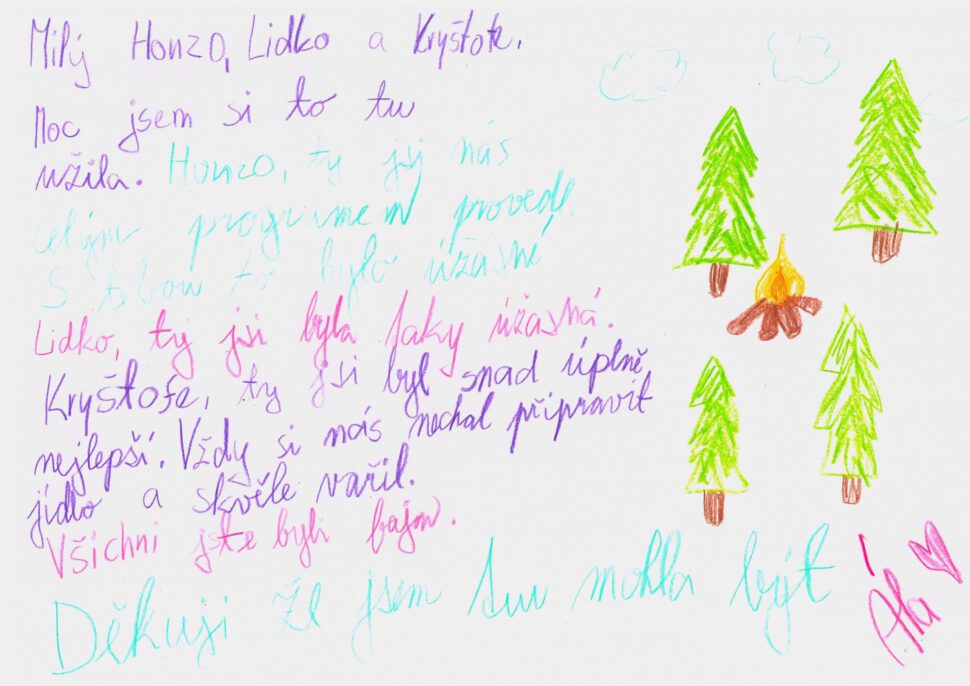 Milý Honzo, Lidko a Kryštofe.
Moc jsem si to tu
užila. Honzo, ty jsi nás
celým programem provedl.
S tabou to bylo úžasné
Lidko, ty jsi byla taky úžasná.
Kryštofe, ty jsi byl snad úplně
nejlepší. Vždy si nás nechal připravit
jídlo a skvěle vařil.
Všichni jste byli bajon.
Děkuji že jsem tu mohla být!